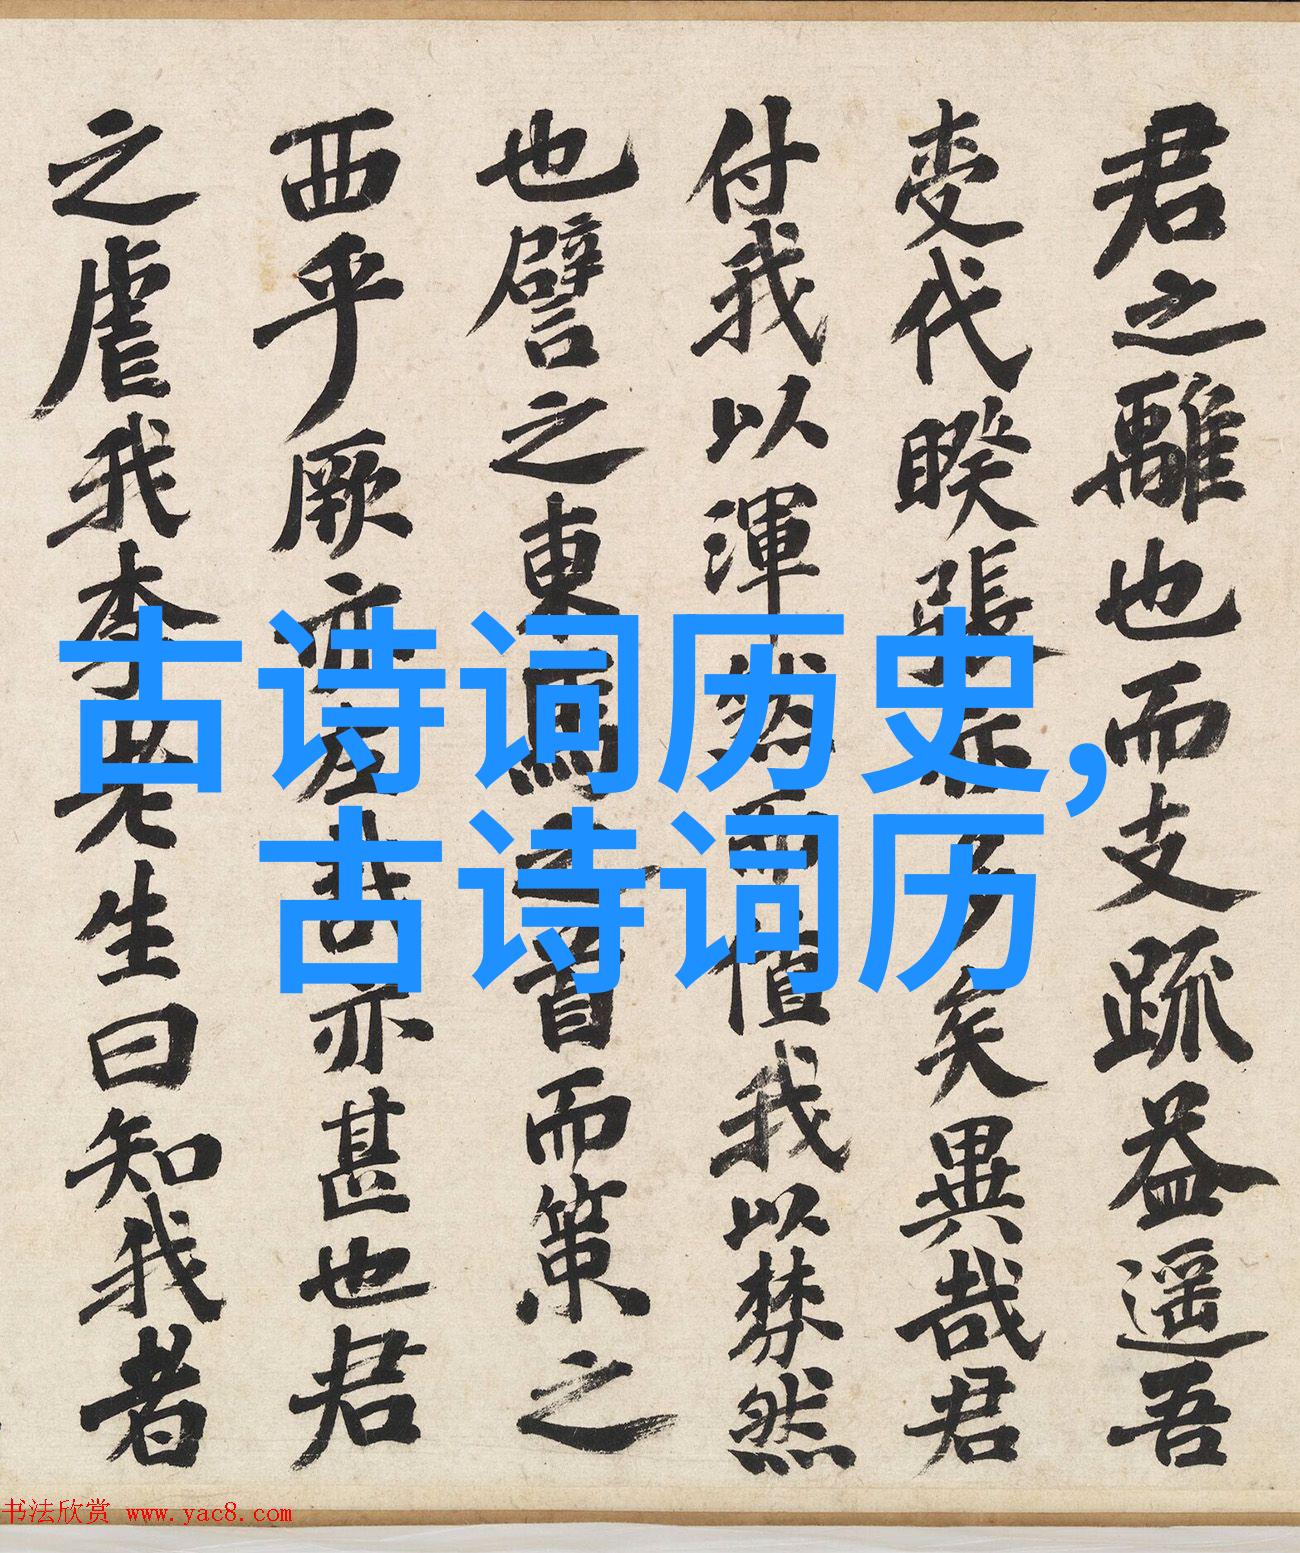 君之離也而支疏益遥吾
麦代睽張
矣異哉君
付我以渾然而值我以棼然
也譬之東馬之首而策之
西乎厥亦左哉亦甚也君
之虐我李老先生曰知我者
古诗词历史,
古诗词历
书法欣赏 www.yac8.com